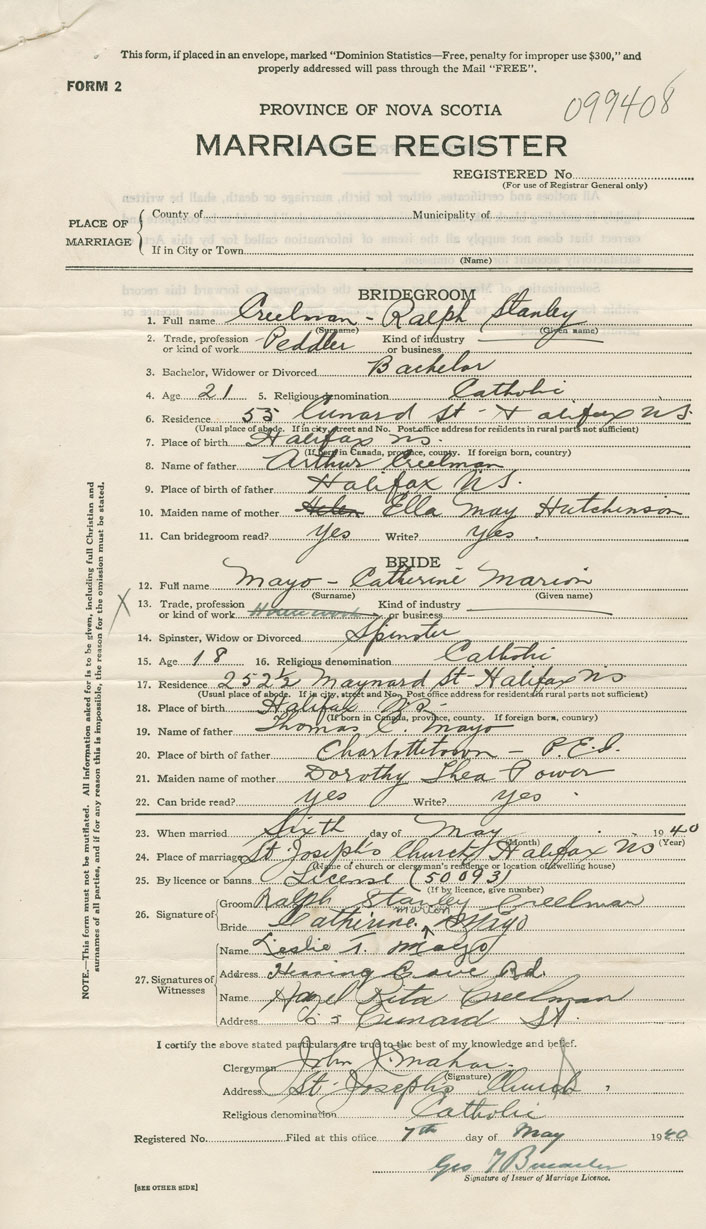 This form, if placed in an envelope, marked "Dominion Statistics—Free, penalty for improper use $300," and
properly addressed will pass through the Mail "FREE".
FORM 2
099408
PROVINCE OF NOVA SCOTIA
MARRIAGE REGISTER
REGISTERED No.
(For use of Registrar General only)
PLACE OF MARRIAGE
County of Municipality of
If in City or Town
(Name)
BRIDEGROOM
1. Full name Creelman - Ralph Stanley
(Surname) (Given name)
2. Trade, profession or kind of work Peddler Kind of industry or business
3. Bachelor, Widower or Divorced Bachelor
4. Age 21 5. Religious denomination Catholic
6. Residence 55 Cunard St - Halifax N.S.
(Usual place of abode. If in city, street and No. Post office address for residents in rural parts not sufficient)
7. Place of birth Halifax N.S.
(If born in Canada, province, county. If foreign born, country)
8. Name of father Arthur Creelman
9. Place of birth of father Halifax N.S.
10. Maiden name of mother Helen Ella May Hutchinson
11. Can bridegroom read? Yes Write? Yes.
BRIDE
12. Full name Mayo - Catherine Marion
(Surname) (Given name)
13. Trade, profession or kind of work Housework Kind of industry or business
X
14. Spinster, Widow or Divorced Spinster
15. Age 18 16. Religious denomination Catholic
17. Residence 252½ Maynard St - Halifax NS
(Usual place of abode. If in city, street and No. Post office address for residents in rural parts not sufficient)
18. Place of birth Halifax NS-
(If born in Canada, province, county. If foreign born, country)
19. Name of father Thomas C. Mayo
20. Place of birth of father Charlottetown - P.E.I.
21. Maiden name of mother Dorothy Shea Power
22. Can bride read? Yes Write? Yes.
23. When married Sixth day of May 1940
(Month) (Year)
24. Place of marriage St Joseph's Church, Halifax NS
(Name of church or clergyman's residence or location of dwelling house)
25. By licence or banns License (50093)
(If by licence, give number)
26. Signature of
Groom Ralph Stanley Creelman
Bride Catherine Marion Mayo
27. Signatures of Witnesses
Name Leslie T. Mayo
Address Herring Cove Rd.
Name Hazel Rita Creelman
Address 65 Cunard St.
I certify the above stated particulars are true to the best of my knowledge and belief.
Clergyman John J. Mahar.
(Signature)
Address St. Joseph's Church,
Religious denomination Catholic
Registered No. Filed at this office 7th day of May 1940
Geo
Signature of Issuer of Marriage Licence.
[SEE OTHER SIDE]
NOTE.—This form must not be mutilated. All information asked for is to be given, including full Christian and
surnames of all parties, and if for any reason this is impossible, the reason for the omission must be stated.